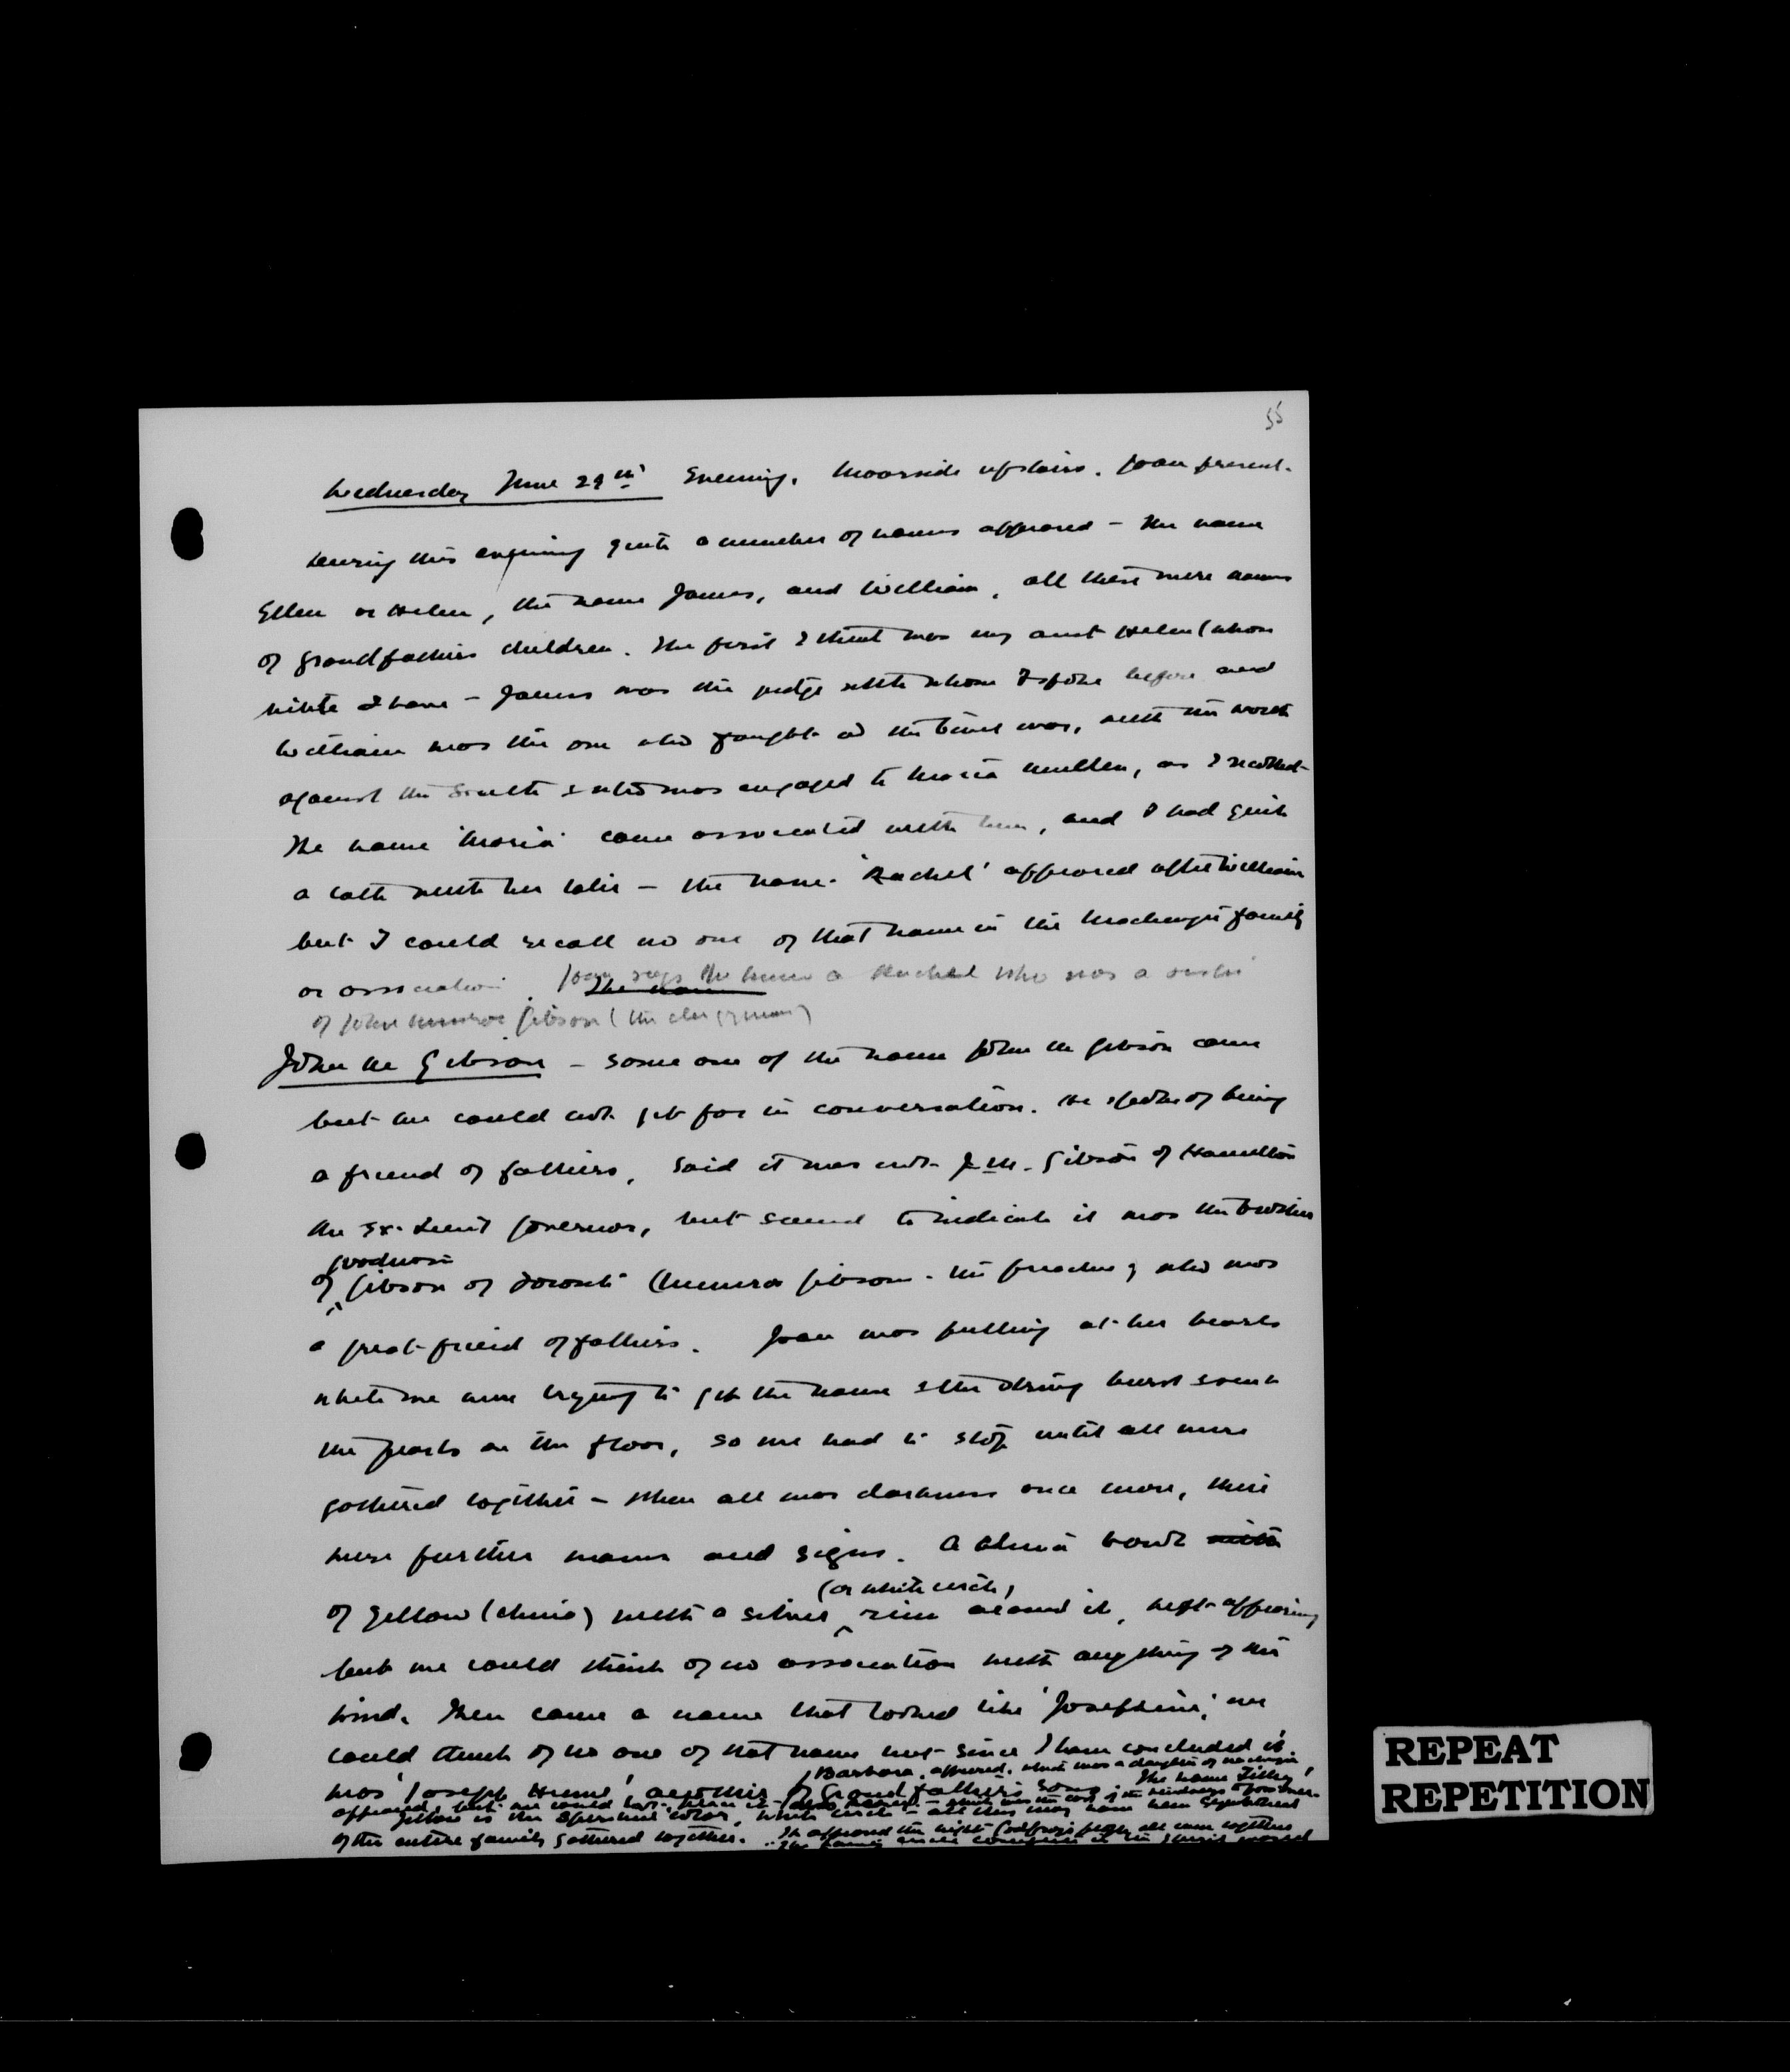 55
Wednesday June 29th Evening. Moorside upstairs. Joan present.
During this evening quite a number of names appeared – the name
Ellen or Helen, the name James, and William, all these were names
of grandfathers children. The first I think was my aunt Helen (whose
James was the judge with whom I spoke before and
William was the one who fought as the time was, with the North
against the South & who was engaged to Maria Mullen, as I recollect
The name 'Maria' came associated with him, and I had quite
a talk with her later – the name 'Rachel' appeared after William
but I could recall no one of that name in the Mackenzie family
or association. Joan says she knew a Rachel who was a sister
of John Munroe Gibson (the clergyman)
John M Gibson – some one of the name John M Gibson came
but we could not get far in conversation. He spoke of being
a friend of fathers, said it was not J.M. Gibson of Hamilton
the Ex. Lieut Governor, but seemed to indicate it was the brother
of Goodwin Gibson of Toronto (Munroe Gibson – the preacher) who was
a great friend of fathers. Joan was pulling at her beads
while we were trying to get the name & the string burst & sent
the pearls on the floor, so we had to stop until all were
gathered together – when all was darkness once more, there
were further names and signs. A china bowl with
of yellow (china) with a silver (or white circle) rim around it, kept appearing
but we could think of no association with anything of the
kind. Then came a name that looked like 'Josephine', we
could think of no one of that name but since I have concluded it
was 'Joseph Hume' another of Grandfather's sons. The name Tilley
Barbara, appeared, which was a daughter of
appeared, but we could not place it
Yellow is the spiritual color, white circle – all this may have been significant
of the entire family gathered together. It appeared the night Godfroy's people all came together
REPEAT
REPETITION